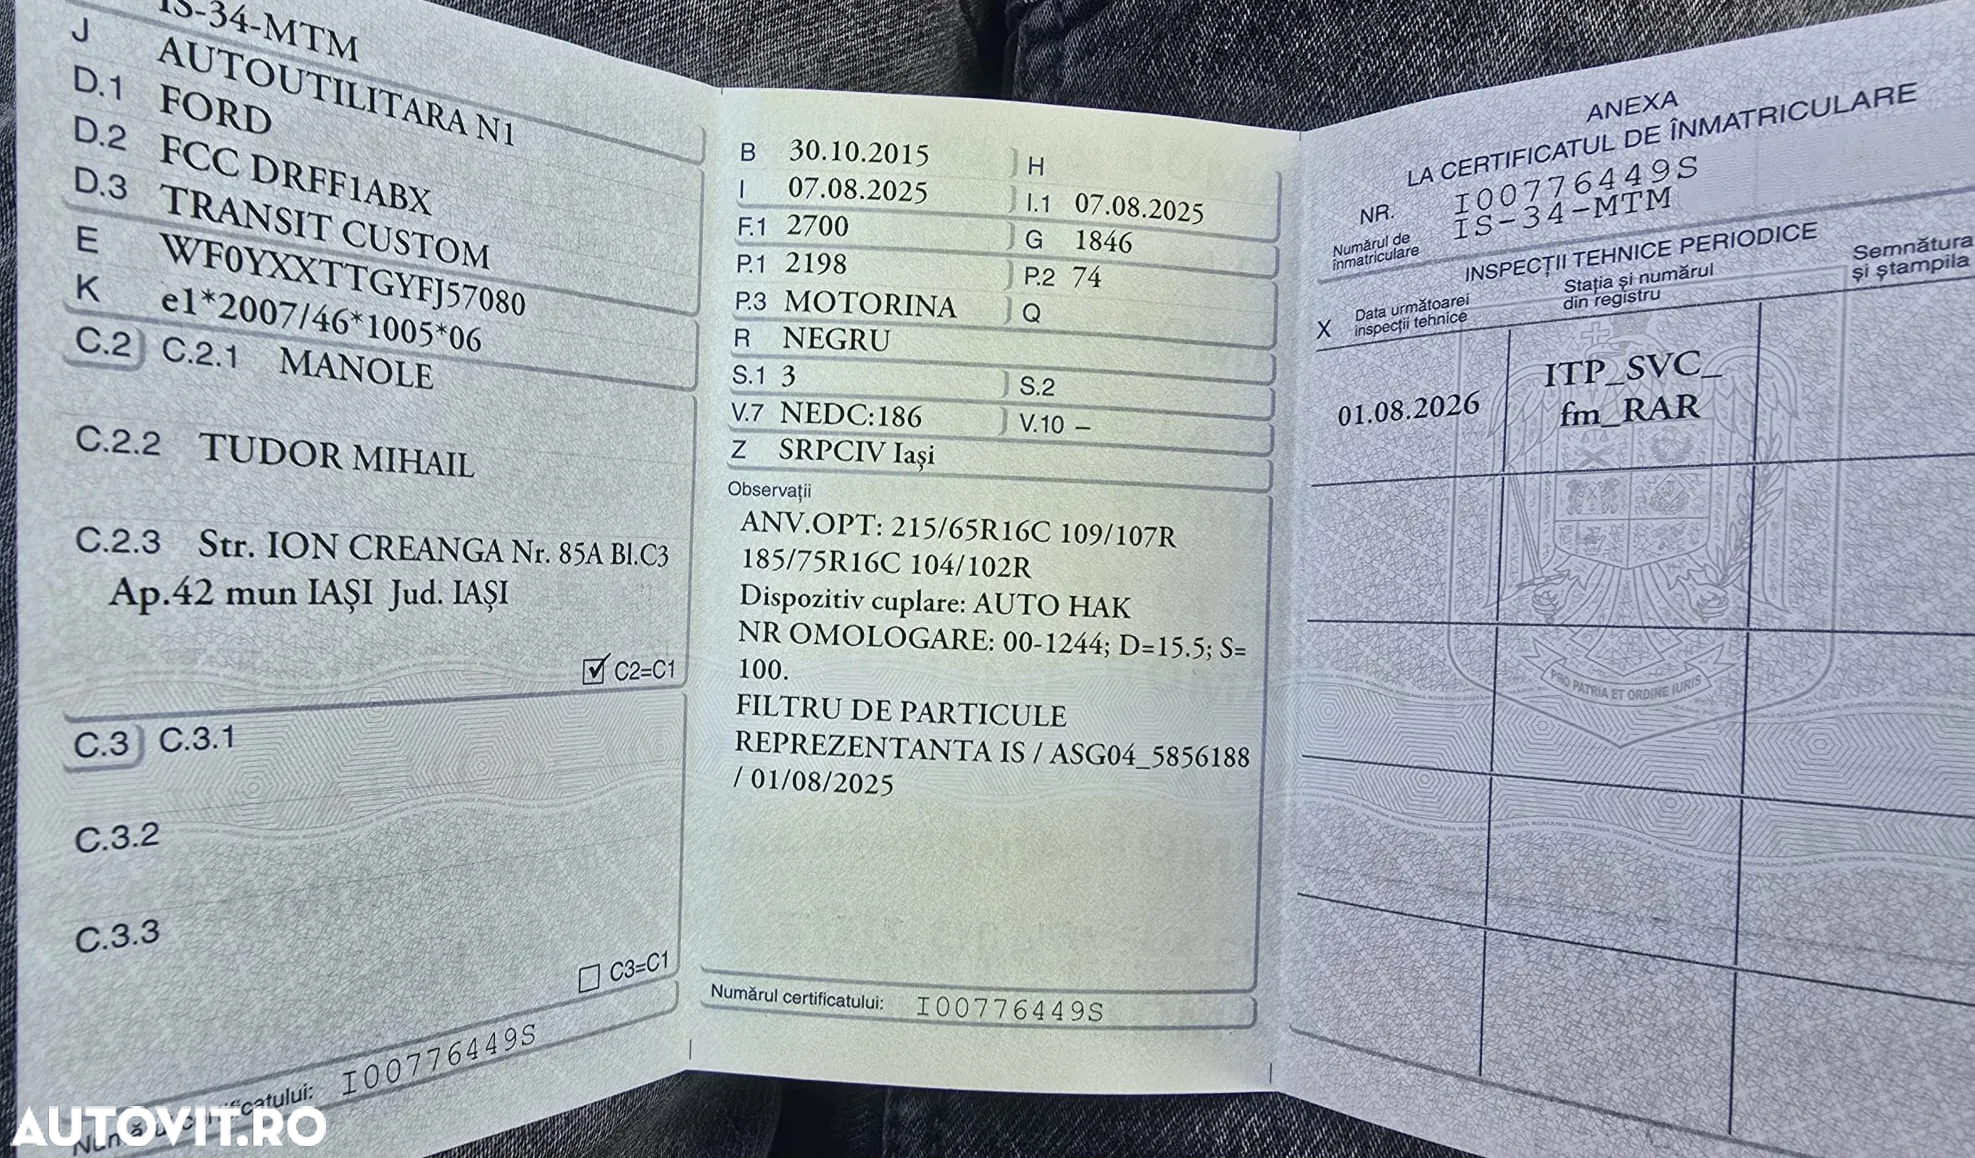 IS-34-MTM
J AUTOUTILITARA N1
D.1 FORD
D.2 FCC DRFF1ABX
D.3 TRANSIT CUSTOM
E WF0YXXTTGYFJ57080
K e1*2007/46*1005*06
C.2 C.2.1 MANOLE
C.2.2 TUDOR MIHAIL
C.2.3 Str. ION CREANGA Nr. 85A Bl.C3
Ap.42 mun IAȘI Jud. IAȘI
C2=C1
C.3 C.3.1
C.3.2
C.3.3
C3=C1
I00776449S
B 30.10.2015 H
I 07.08.2025 I.1 07.08.2025
F.1 2700 G 1846
P.1 2198 P.2 74
P.3 MOTORINA Q
R NEGRU
S.1 3 S.2
V.7 NEDC:186 V.10 –
Z SRPCIV Iași
Observații
ANV.OPT: 215/65R16C 109/107R
185/75R16C 104/102R
Dispozitiv cuplare: AUTO HAK
NR OMOLOGARE: 00-1244; D=15.5; S=
100.
FILTRU DE PARTICULE
REPREZENTANTA IS / ASG04_5856188
/ 01/08/2025
Numărul certificatului: I00776449S
ANEXA
LA CERTIFICATUL DE ÎNMATRICULARE
NR. I00776449S
Numărul de
înmatriculare IS-34-MTM
INSPECȚII TEHNICE PERIODICE
X Data următoarei
inspecții tehnice
Stația și numărul
din registru
Semnătura
și ștampila
01.08.2026
ITP_SVC_
fm_RAR
PRO PATRIA ET ORDINE IURIS
AUTOVIT.RO